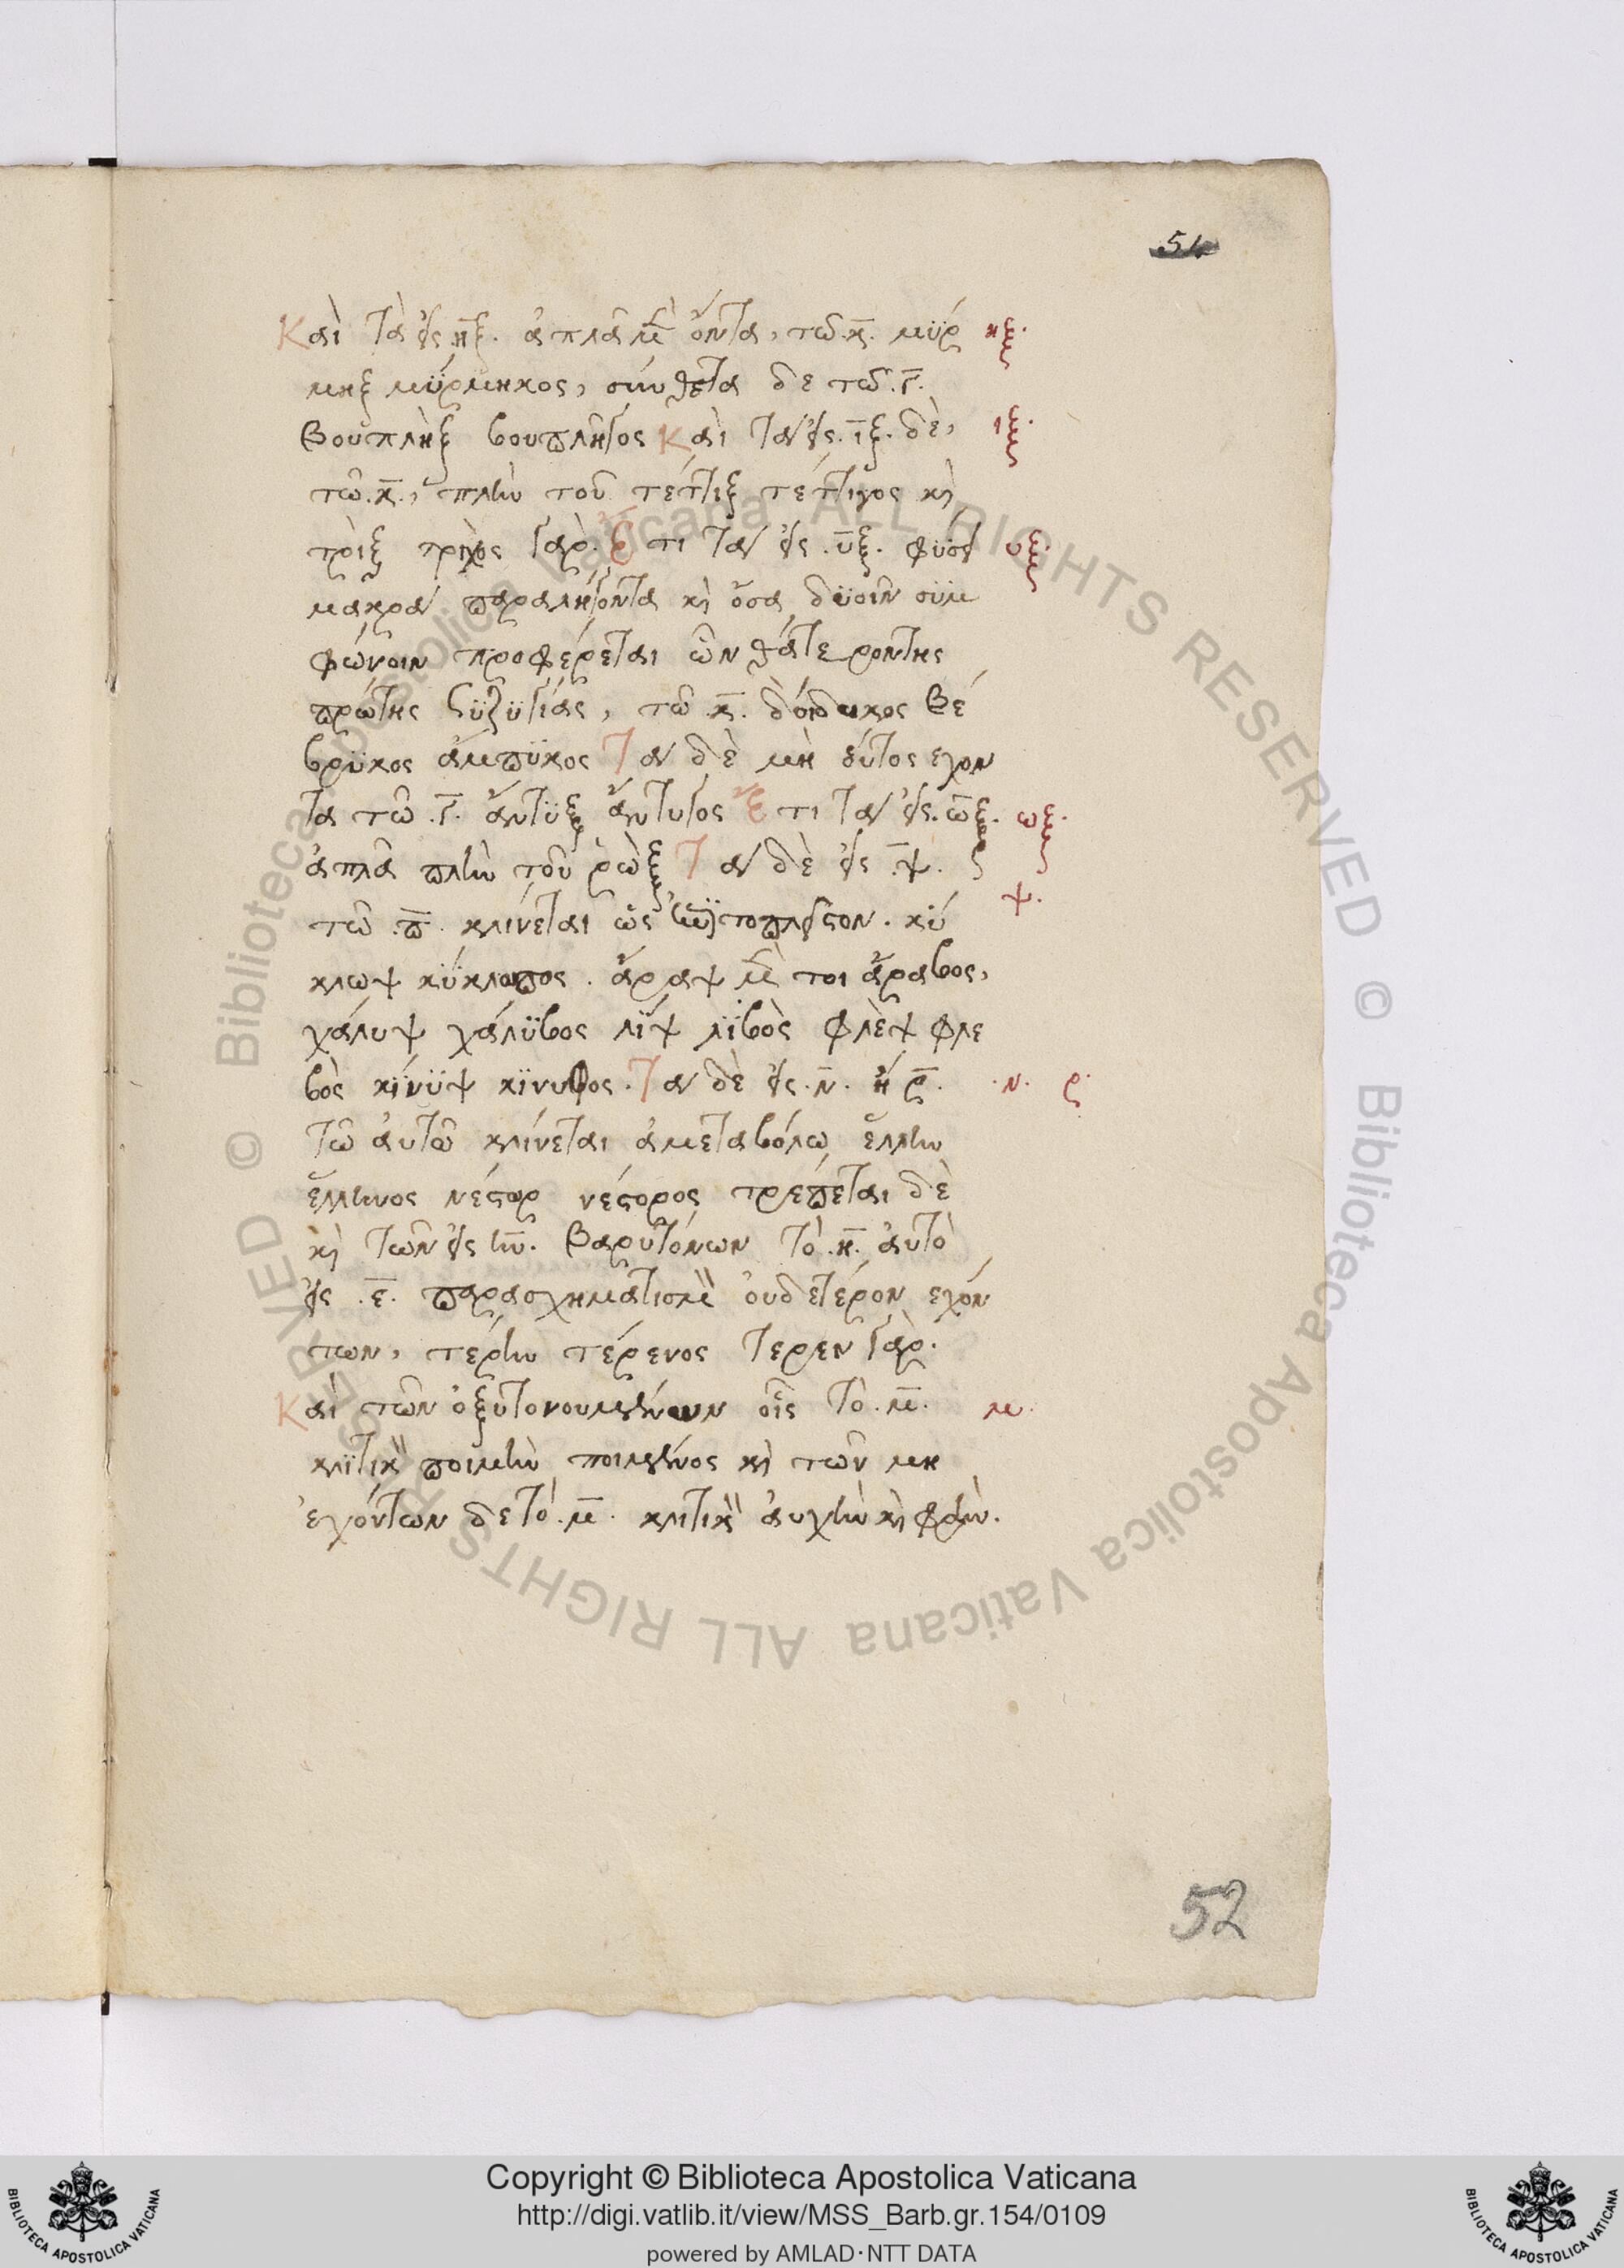 54
Καὶ τὰ εἰς ηξ. ἁπλᾶ μὲν ὄντα, τῶ κ. μϋρ ηξ.
μηξ μϋρμηκος, σύνθετα δε τῶ .γ.
Βουπλὴξ βουπλῆγος Καὶ ταν εἰς .ιξ. δὲ, ιξ.
τῶ .κ., πλὴν τοῦ τέττιξ τέττιγος κὶ
τρὶξ τριχος γαρ. Ἔτι ταν εἰς .υξ. φύσει υξ.
μακραν παραλήγοντα κὶ ὅσα δϋοῖν σϋμ
φώνοιν προφέρεται ὧν θάτερον της
πρώτης συζϋγίας, τῶ .κ. δόιδυκος Βέ
βρϋκος ἄμπϋκος Ταν δὲ μὴ ὅυτος εχον
τα τῶ .γ. ἄντϋξ ἄντυγος Ἔτι ταν εἰς .ωξ. ωξ.
ἁπλᾶ πλὴν τοῦ ῥὼξ Ταν δὲ εἰς .ψ. ψ.
τῶ .π. κλίνεται ὡς ἐπιτοπλεῖστον. κύ
κλωψ κύκλοπος. ἄραψ μέν τοι ἄραβος,
χάλυψ χάλϋβος λϊψ λϊβὸς φλὲψ φλε
βὸς κίνϋψ κϊνυφος. Ταν δὲ εἰς .ν. ἤ ρ. .ν. ρ.
τῶ ἀυτῶ κλίνεται ἀμεταβόλω ἕλλην
ἕλληνος νέστωρ νέστορος τρέπεται δὲ
κὶ τῶν εἰς ην. Βαρυτόνων τὸ .η. ἀυτὸ
εἰς .ε. παρασχηματισμὸν ὀυδετέρον εχόν
των, τέρην τέρενος τερεν γαρ.
Καὶ τῶν ὀξυτονουμένων οἷς τὸ .μ. μ.
κλϊτικὸν ποιμὴν ποιμένος κὶ τῶν μη
ἐχόντων δε τὸ .μ. κλιτικὸν ἀυχὴν κὶ φρὴν.
52
Copyright © Biblioteca Apostolica Vaticana
http://digi.vatlib.it/view/MSS_Barb.gr.154/0109
powered by AMLAD·NTT DATA
BIBLIOTECA APOSTOLICA VATICANA
BIBLIOTECA APOSTOLICA VATICANA
© Biblioteca Apostolica Vaticana ALL RIGHTS RESERVED © Biblioteca Apostolica Vaticana ALL RIGHTS RESERVED